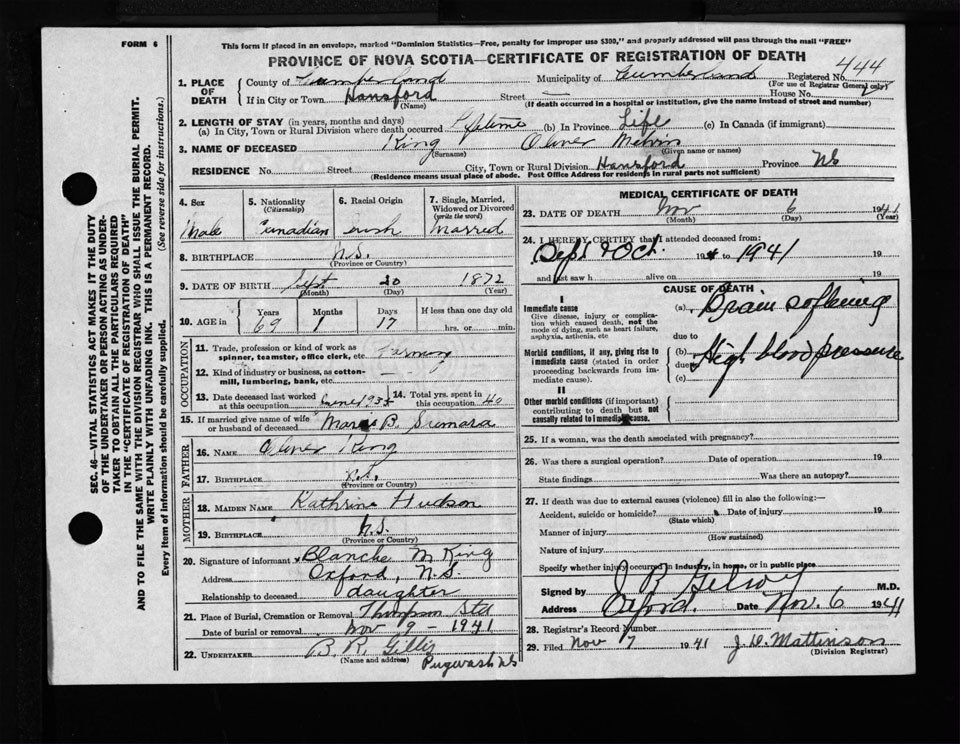 FORM 6
This form if placed in an envelope, marked "Dominion Statistics—Free, penalty for improper use $300," and properly addressed will pass through the mail "FREE"
PROVINCE OF NOVA SCOTIA—CERTIFICATE OF REGISTRATION OF DEATH
1. PLACE OF DEATH County of Cumberland Municipality of Cumberland Registered No. 444
(For use of Registrar General only)
If in City or Town Hansford Street — House No.
(Name) (If death occurred in a hospital or institution, give the name instead of street and number)
2. LENGTH OF STAY (in years, months and days)
(a) In City, Town or Rural Division where death occurred Lifetime (b) In Province Life (c) In Canada (if immigrant)
3. NAME OF DECEASED King Oliver Melvin
(Surname) (Given name or names)
RESIDENCE No. Street City, Town or Rural Division Hansford Province NS
(Residence means usual place of abode. Post Office Address for residents in rural parts not sufficient)
4. Sex Male
5. Nationality (Citizenship) Canadian
6. Racial Origin Irish
7. Single, Married, Widowed or Divorced (write the word) Married
8. BIRTHPLACE N.S.
(Province or Country)
9. DATE OF BIRTH Sept 20 1872
(Month) (Day) (Year)
10. AGE in Years Months Days If less than one day old
69 1 17 hrs. or min.
OCCUPATION
11. Trade, profession or kind of work as spinner, teamster, office clerk, etc. Farmer
12. Kind of industry or business, as cotton-mill, lumbering, bank, etc.
13. Date deceased last worked at this occupation June 1935 14. Total yrs. spent in this occupation 40
15. If married give name of wife or husband of deceased B.
FATHER
16. NAME Oliver King
17. BIRTHPLACE N.S.
(Province or Country)
MOTHER
18. MAIDEN NAME Kathrine Hudson
19. BIRTHPLACE N.S.
(Province or Country)
20. Signature of informant Blanche M King
Address Oxford, N.S.
Relationship to deceased daughter
21. Place of Burial, Cremation or Removal Thompson Sta
Date of burial or removal Nov 9 - 1941
22. UNDERTAKER B. R. Gillis
(Name and address) Pugwash NS
MEDICAL CERTIFICATE OF DEATH
23. DATE OF DEATH Nov 6 1941
(Month) (Day) (Year)
24. I HEREBY CERTIFY that I attended deceased from:
Sept & Oct. 19 to 1941 19
and last saw h alive on 19
CAUSE OF DEATH
I
Immediate cause (a) Brain softening
Give disease, injury or complication which caused death, not the mode of dying, such as heart failure, asphyxia, asthenia, etc
due to
Morbid conditions, if any, giving rise to immediate cause (stated in order proceeding backwards from immediate cause). (b) High blood pressure
due to
(c)
II
Other morbid conditions (if important) contributing to death but not causally related to immediate cause.
25. If a woman, was the death associated with pregnancy?
26. Was there a surgical operation? Date of operation 19
State findings Was there an autopsy?
27. If death was due to external causes (violence) fill in also the following:—
Accident, suicide or homicide? Date of injury 19
(State which)
Manner of injury
(How sustained)
Nature of injury
Specify whether injury occurred in industry, in home, or in public place
Signed by J. B. M.D.
Address Oxford. Date Nov. 6 1941
28. Registrar's Record Number
29. Filed Nov 7 1941 J. D. Mattinson
(Division Registrar)
SEC. 46—VITAL STATISTICS ACT MAKES IT THE DUTY
OF THE UNDERTAKER OR PERSON ACTING AS UNDERTAKER TO OBTAIN ALL THE PARTICULARS REQUIRED
IN THE "CERTIFICATE OF REGISTRATION OF DEATH"
AND TO FILE THE SAME WITH THE DIVISION REGISTRAR WHO SHALL ISSUE THE BURIAL PERMIT.
WRITE PLAINLY WITH UNFADING INK. THIS IS A PERMANENT RECORD.
Every item of information should be carefully supplied. (See reverse side for instructions.)